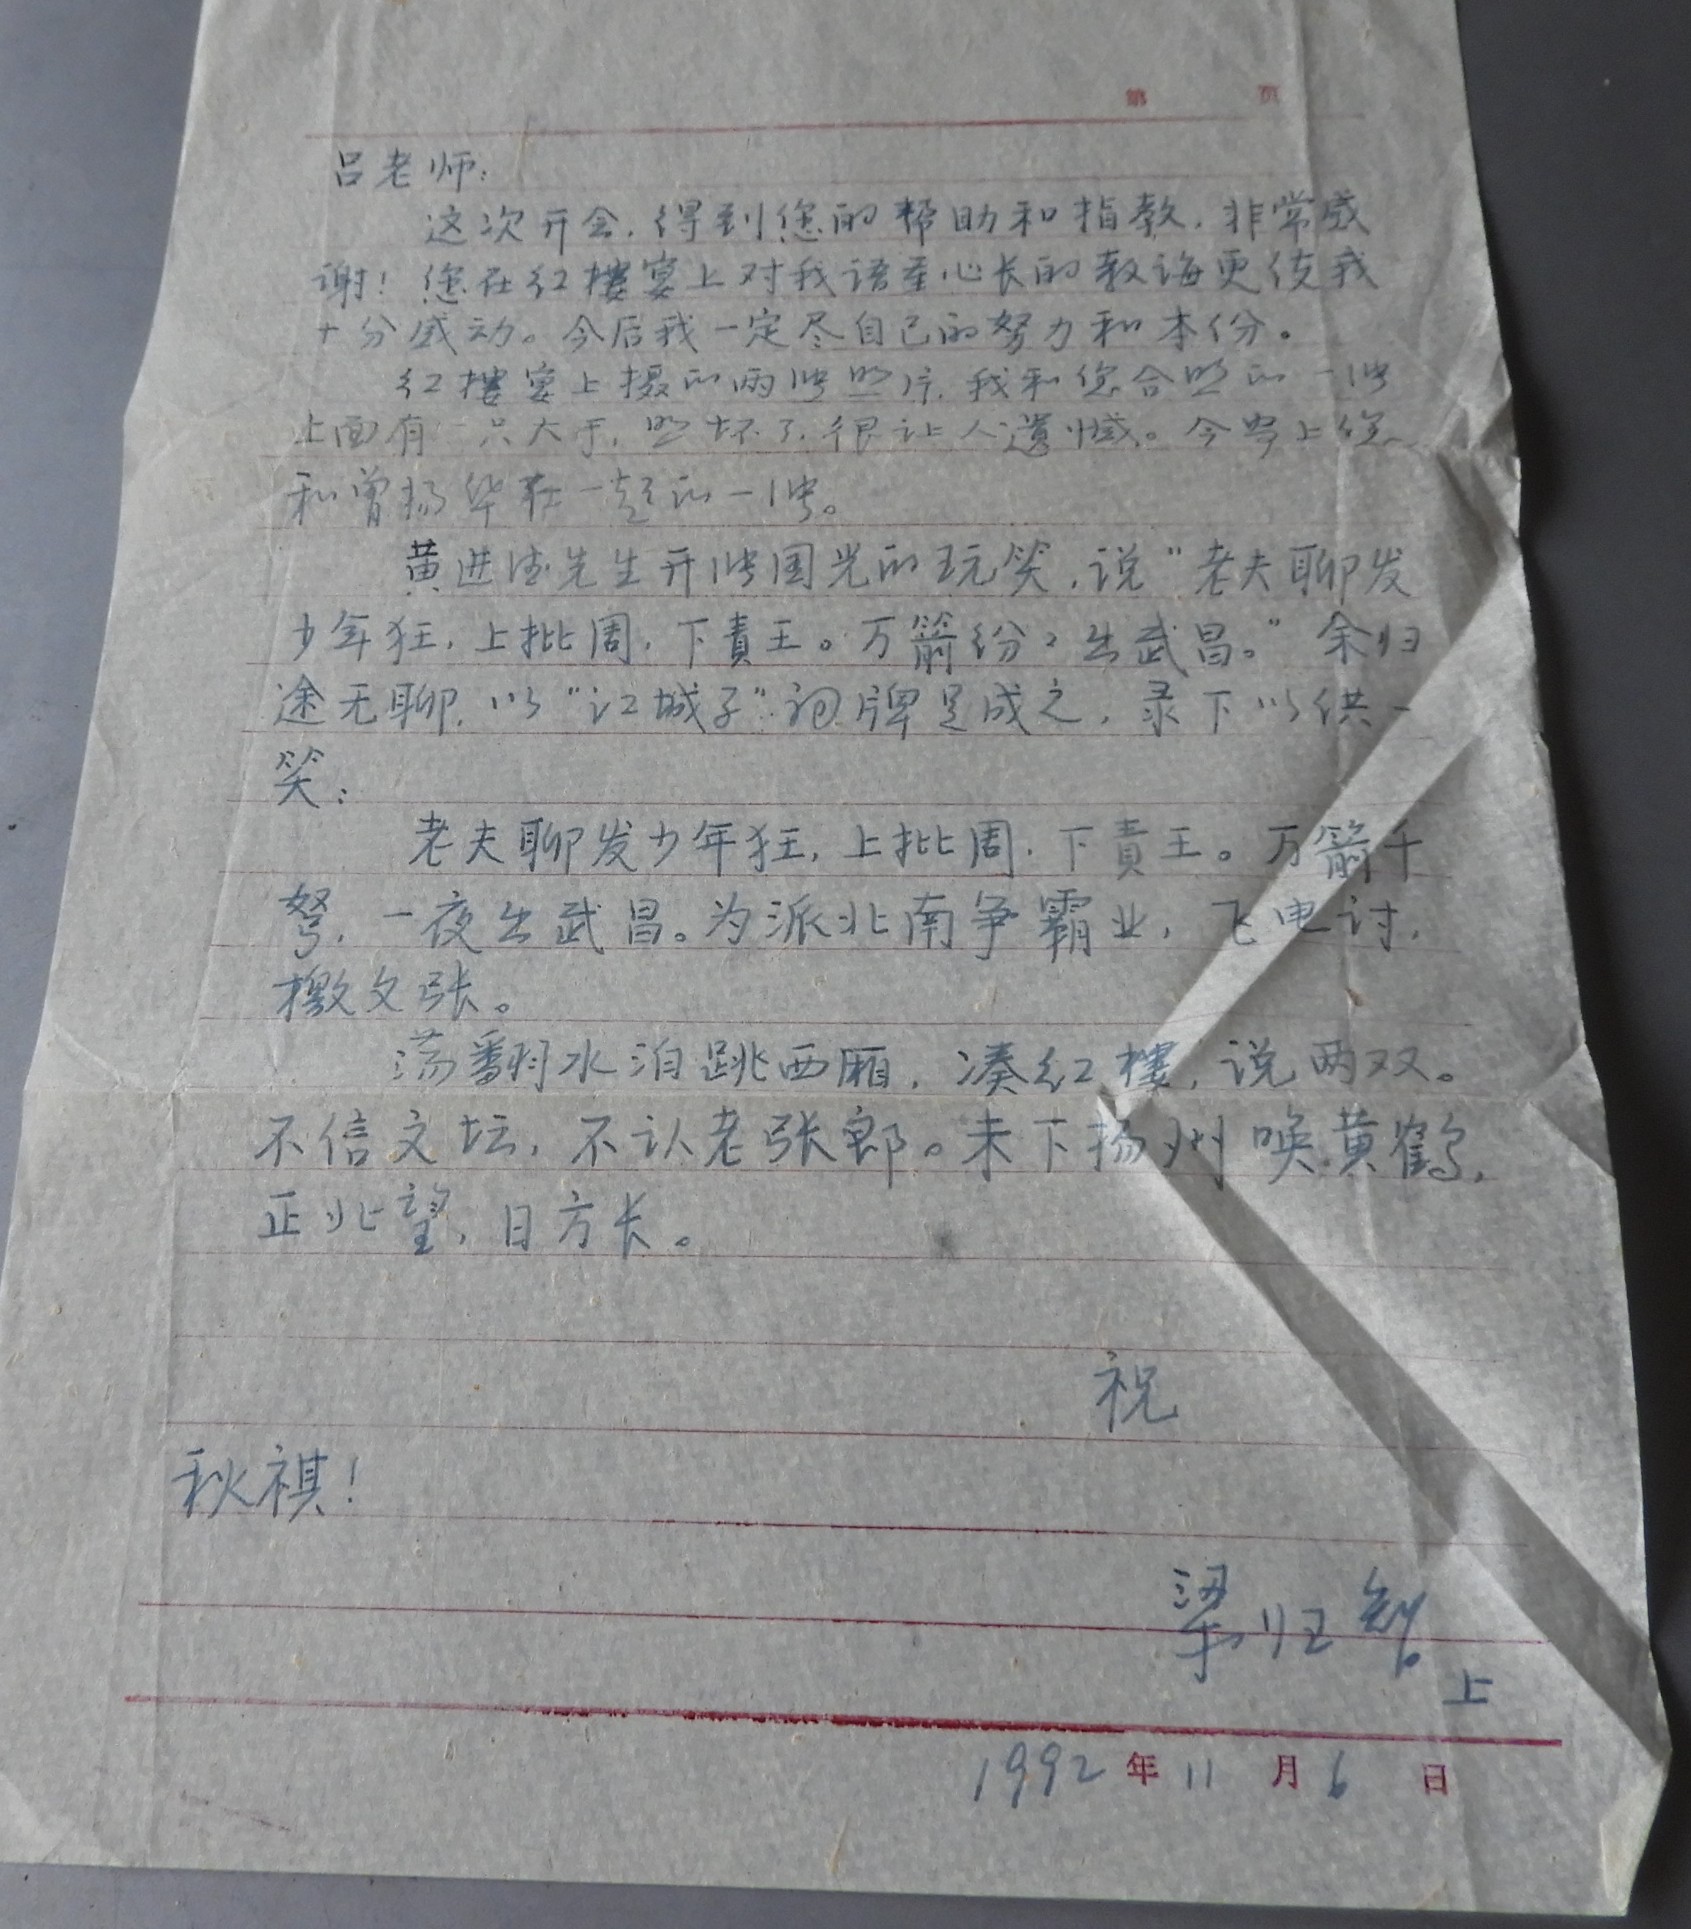 第 页
吕老师：
这次开会，得到您的帮助和指教，非常感
谢！您在红樓宴上对我语重心长的教诲更使我
十分感动。今后我一定尽自己的努力和本份。
红樓宴上摄的两张照片，我和您合照的一张
上面有一只大手，照坏了，很让人遗憾。今寄上您
和曾扬华在一起的一张。
黄进德先生开张国光的玩笑，说“老夫聊发
少年狂，上批周，下責王。万箭纷々出武昌。”余归
途无聊，以“江城子”词牌足成之，录下以供一
笑：
老夫聊发少年狂，上批周，下責王。万箭千
弩，一夜出武昌。为派北南争霸业，飞电讨，
檄文张。
荡翻水泊跳西厢，凑红樓，说两双。
不信文坛，不认老张郎。未下扬州唤黄鹤，
正北望，日方长。
祝
秋祺！
梁归智
上
1992年11月6日